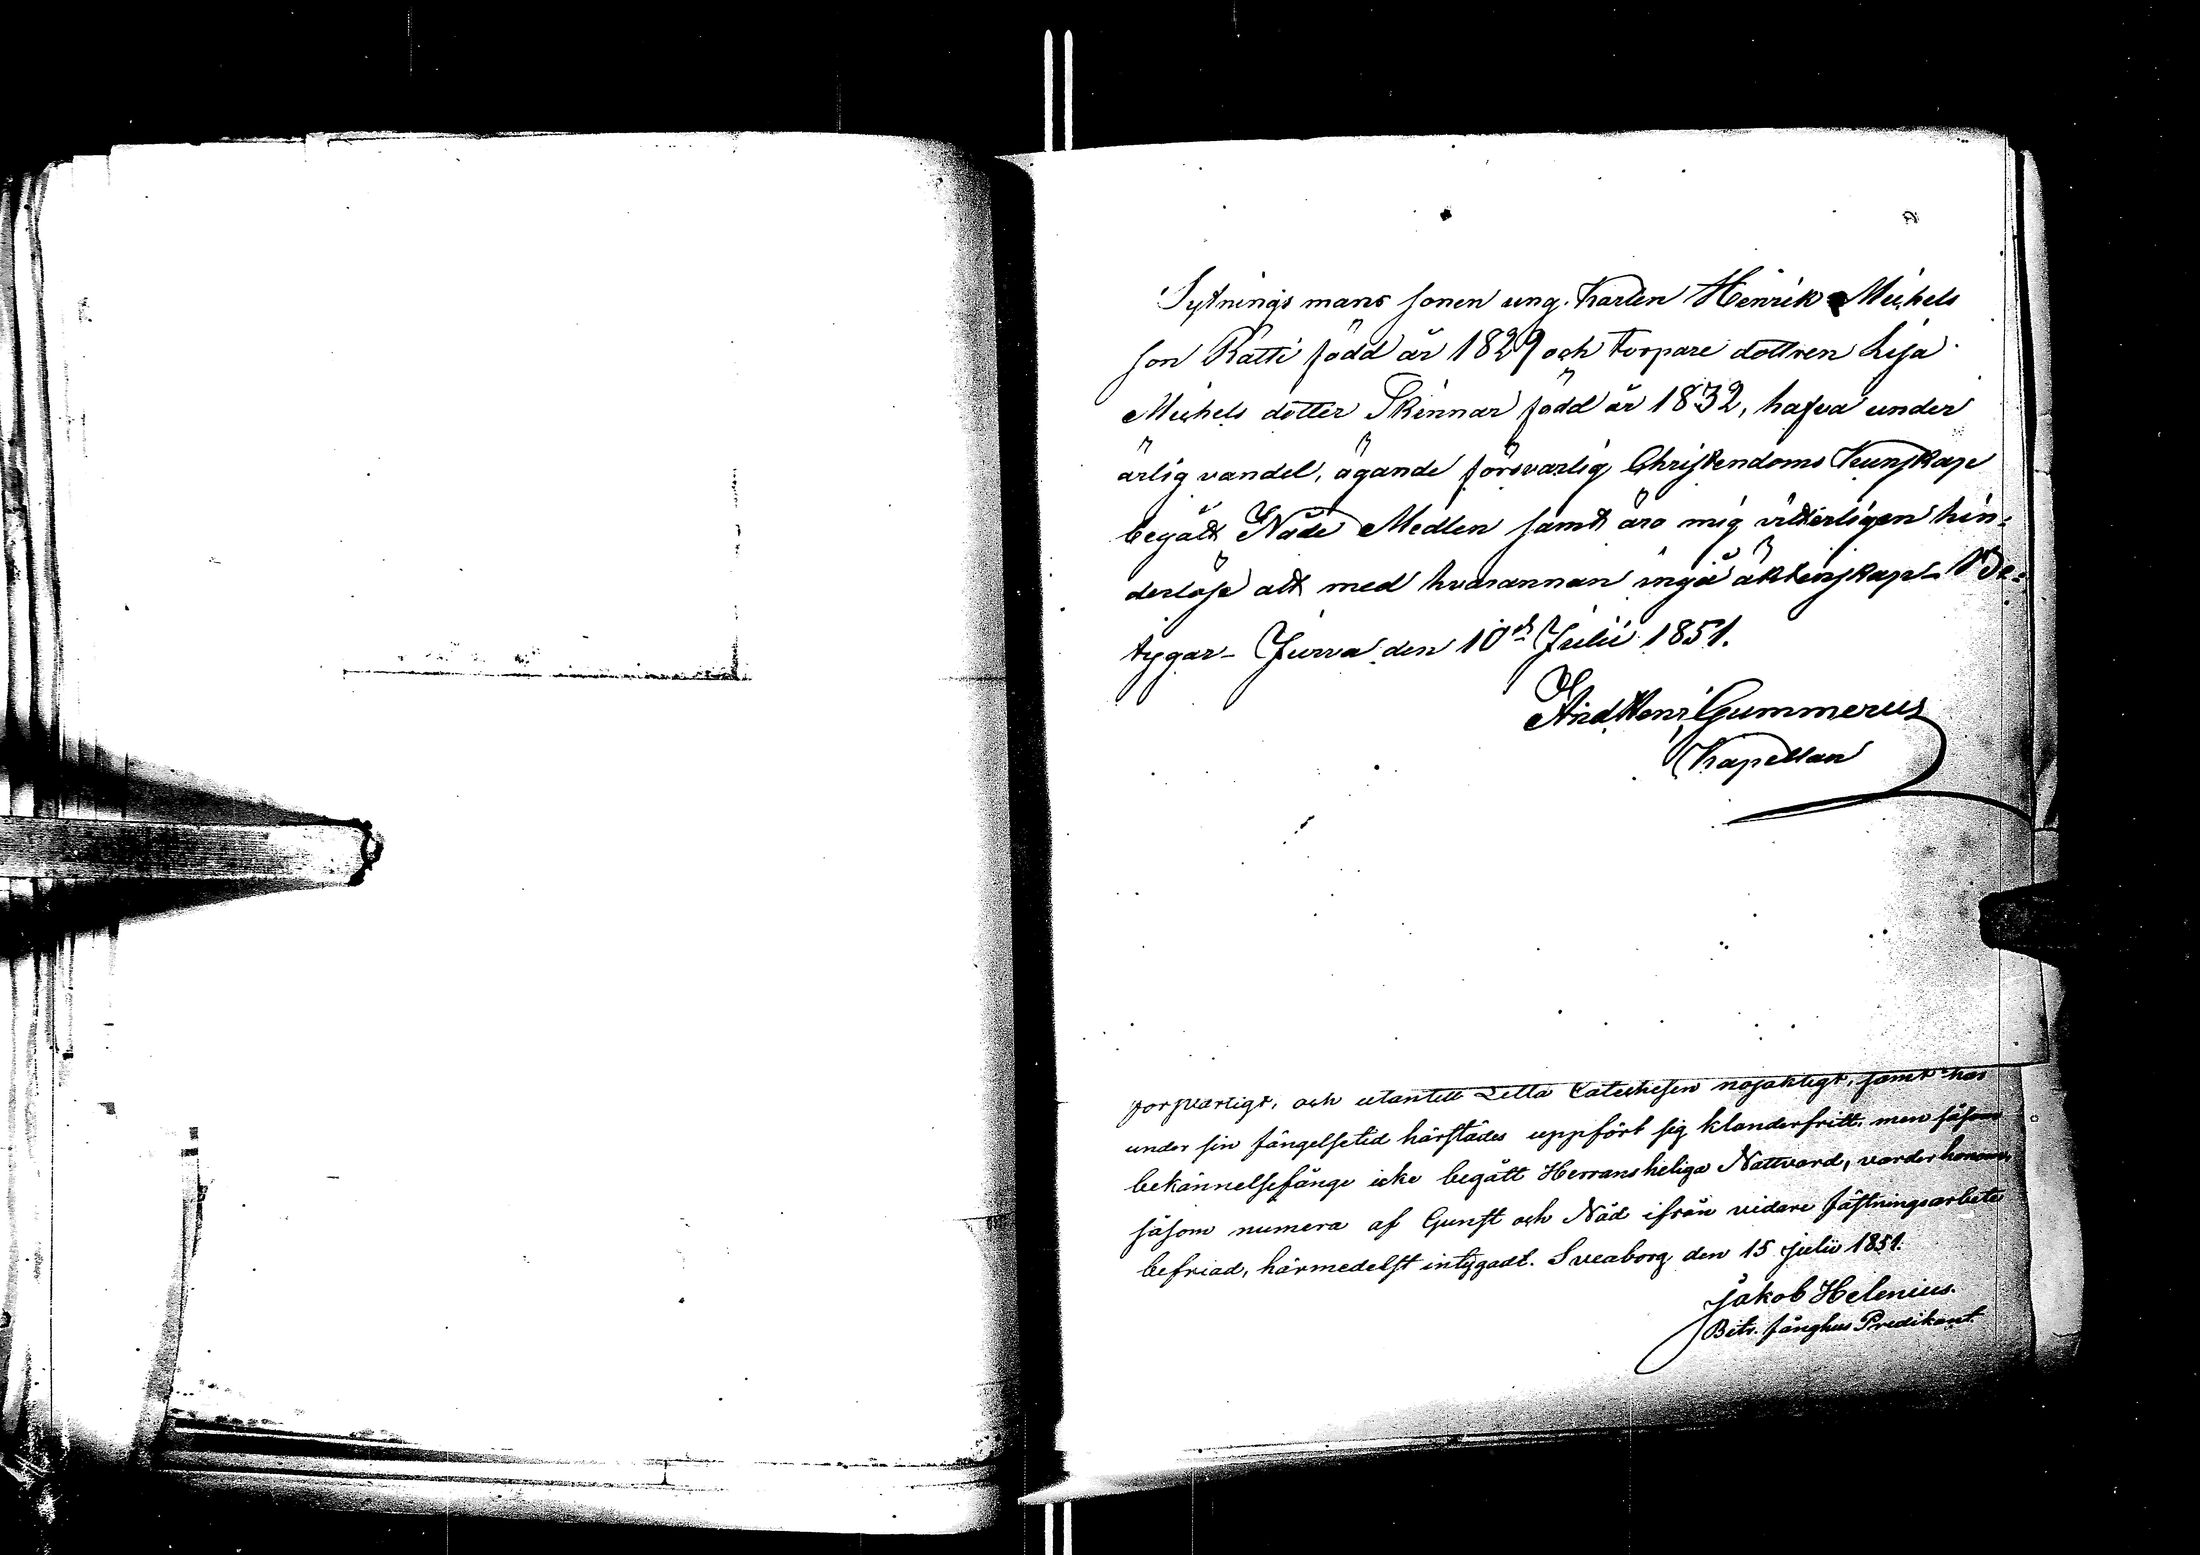 Sytnings mans sonen ung. Karlen Henrik Michels
son Ratti född år 1829 och torpare dottren Lisa
Michels dotter Skinnar född år 1832, hafva under
ärlig vandel, ägande försvarlig Christendoms Kunskap
begått Nåde Medlen samt äro mig vitterligen hin-
derlöse att med hvarannan ingå äktenskap. Be-
tygar. Jurva den 10de Julii 1851.
And Henr Gummerus
Kapellan
försvarligt, och utantill Lilla Catechesen nöjaktigt, samt har
under sin fängelsetid härstädes uppfört sig klanderfritt, men såsom
bekännelsefånge icke begått Herrans heliga Nattvard, varder honom,
såsom numera af Gunst och Nåd ifrån vidare fästningsarbete
befriad, härmedelst intygadt. Sveaborg den 15 Julii 1851.
Jakob Helenius.
Bitr. Fånghus Predikant.